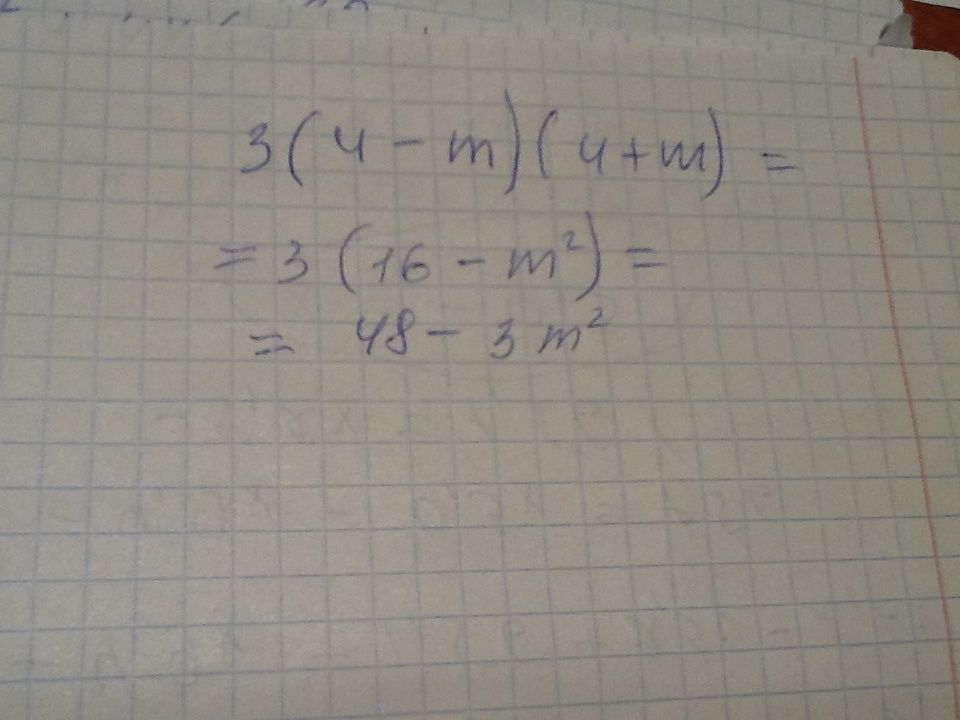 3(4 - m)(4+m) =
= 3 (16 - m²) =
= 48 - 3 m²